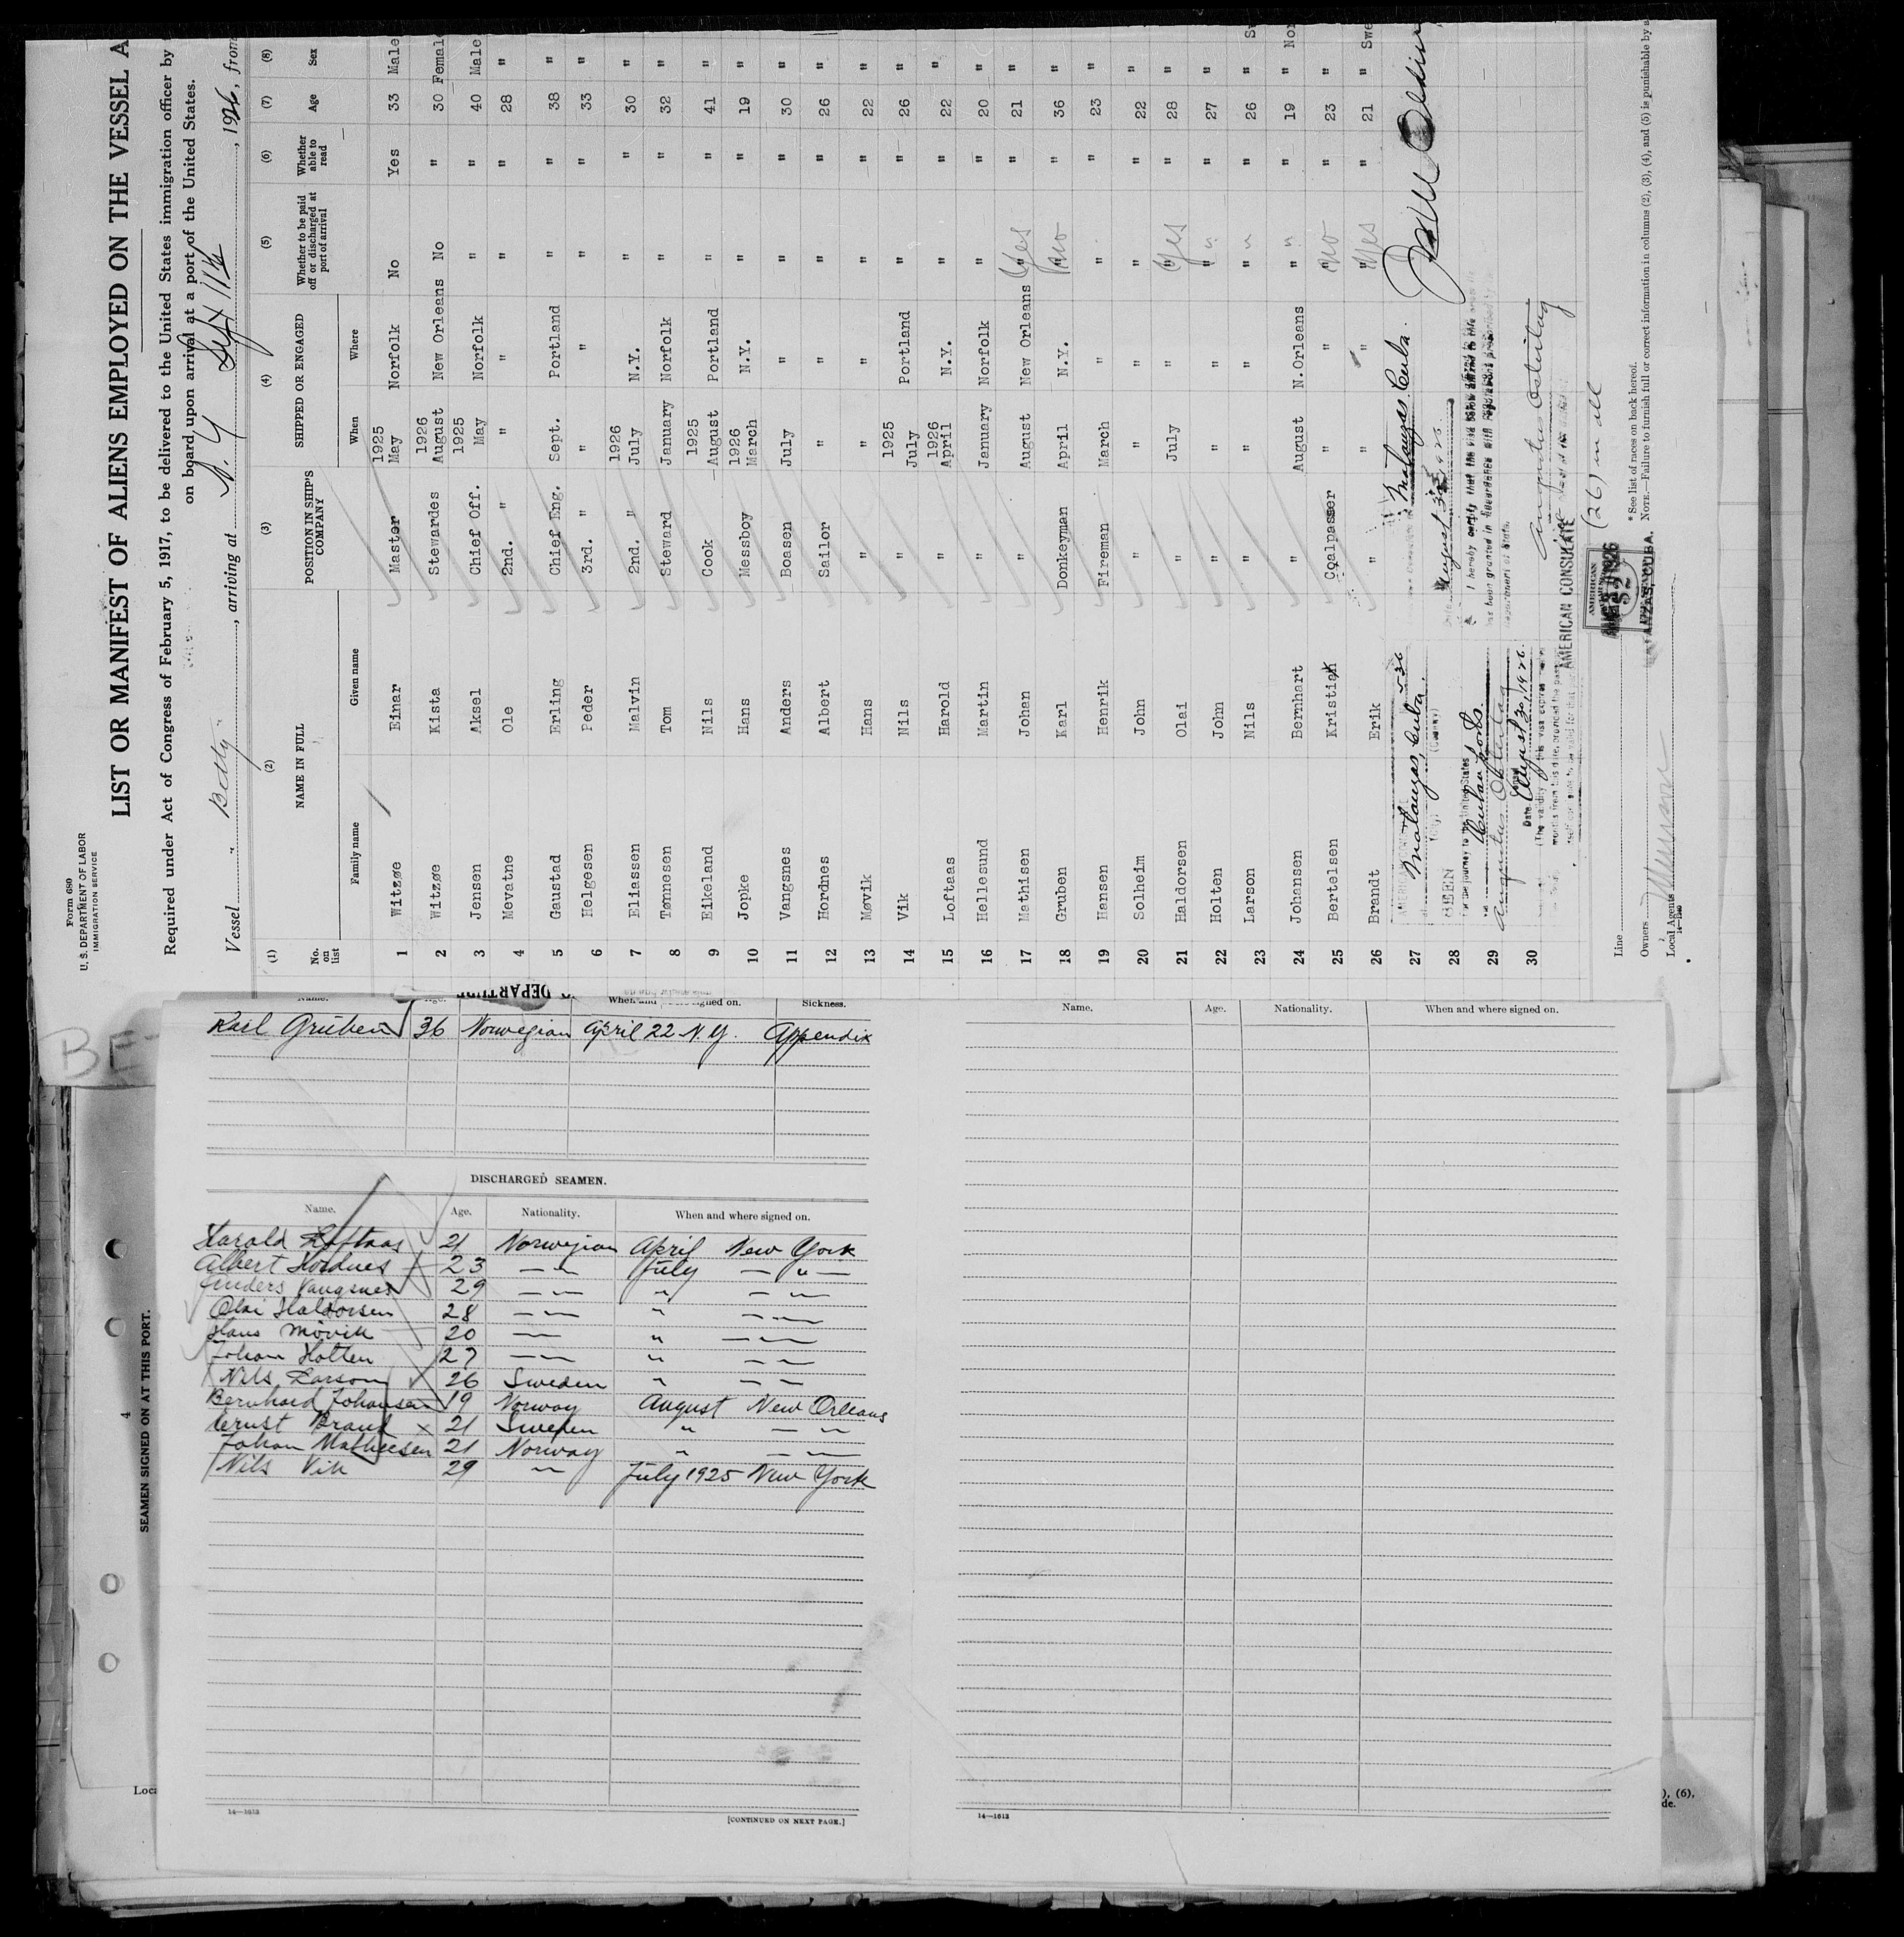 Form 680
U. S. DEPARTMENT OF LABOR
IMMIGRATION SERVICE
LIST OR MANIFEST OF ALIENS EMPLOYED ON THE VESSEL A
Required under Act of Congress of February 5, 1917, to be delivered to the United States immigration officer by
on board upon arrival at a port of the United States.
Vessel " Betty " , arriving at N. Y Sept 11th , 1926, from
(1) (2) (3) (4) (5) (6) (7) (8)
No. on list NAME IN FULL POSITION IN SHIP'S COMPANY SHIPPED OR ENGAGED Whether to be paid off or discharged at port of arrival Whether able to read Age Sex
Family name Given name When Where
1 Witzøe Einar Master 1925 May Norfolk No Yes 33 Male
2 Witzøe Kista Stewardes 1926 August New Orleans No " 30 Female
3 Jensen Aksel Chief Off. 1925 May Norfolk " " 40 Male
4 Mevatne Ole 2nd. " " " " " 28 "
5 Gaustad Erling Chief Eng. Sept. Portland " " 38 "
6 Helgesen Peder 3rd. " " " " " 33 "
7 Eliassen Malvin 2nd. " 1926 July N.Y. " " 30 "
8 Tønnesen Tom Steward January Norfolk " " 32 "
9 Eikeland Nils Cook 1925 August Portland " " 41 "
10 Jopke Hans Messboy 1926 March N.Y. " " 19 "
11 Vangsnes Anders Boasen July " " " 30 "
12 Hordnes Albert Sailor " " " " 26 "
13 Møvik Hans " " " " " 22 "
14 Vik Nils " 1925 July Portland " " 26 "
15 Loftaas Harold " 1926 April N.Y. " " 22 "
16 Hellesund Martin " January Norfolk " " 20 "
17 Mathisen Johan " August New Orleans " Yes " 21 "
18 Gruben Karl Donkeyman April N.Y. " No " 36 "
19 Hansen Henrik Fireman March " " " 23 "
20 Solheim John " " " " " 22 "
21 Haldorsen Olai " July " " Yes " 28 "
22 Holten John " " " " " " 27 "
23 Larson Nils " " " " " " 26 " Sw
24 Johansen Bernhart " August N.Orleans " " " 19 " Nor
25 Bertelsen Kristian Coalpasser " " " No " 23 "
26 Brandt Erik " " " " Yes " 21 " Swe
27
28
29
30
Matanzas, Cuba
SEEN
For the journey to the United States
August 30, 1926
Matanzas Cuba.
I hereby certify that the
Department of State.
AMERICAN CONSULATE
MATANZAS, CUBA.
(26) in all
Line
Owners
Local Agents
* See list of races on back hereof.
NOTE.—Failure to furnish full or correct information in columns (2), (3), (4), and (5) is punishable by a
DEPARTURE
BE
Name. Age. When and signed on. Sickness.
Karl Gruben 36 Norwegian April 22 N.Y. Appendix
DISCHARGED SEAMEN.
Name. Age. Nationality. When and where signed on.
Harald Loftaas 21 Norwegian April New York
Albert Hordnes 23 — " — July — " —
Anders Vangsnes 29 — " — " — " —
Olai Haldorsen 28 — " — " — " —
Hans Mövik 20 — " — " — " —
Johan Holten 27 — " — " — " —
Nils Larson 26 Sweden " — " —
Bernhard Johansen 19 Norway August New Orleans
Ernst Brand x 21 Sweden " — " —
Johan Mathiesen 21 Norway " — " —
Nils Vik 29 — " — July 1925 New York
14—1613
[CONTINUED ON NEXT PAGE.]
Name. Age. Nationality. When and where signed on.
14—1613
4
SEAMEN SIGNED ON AT THIS PORT.
Loca
), (6),
de.